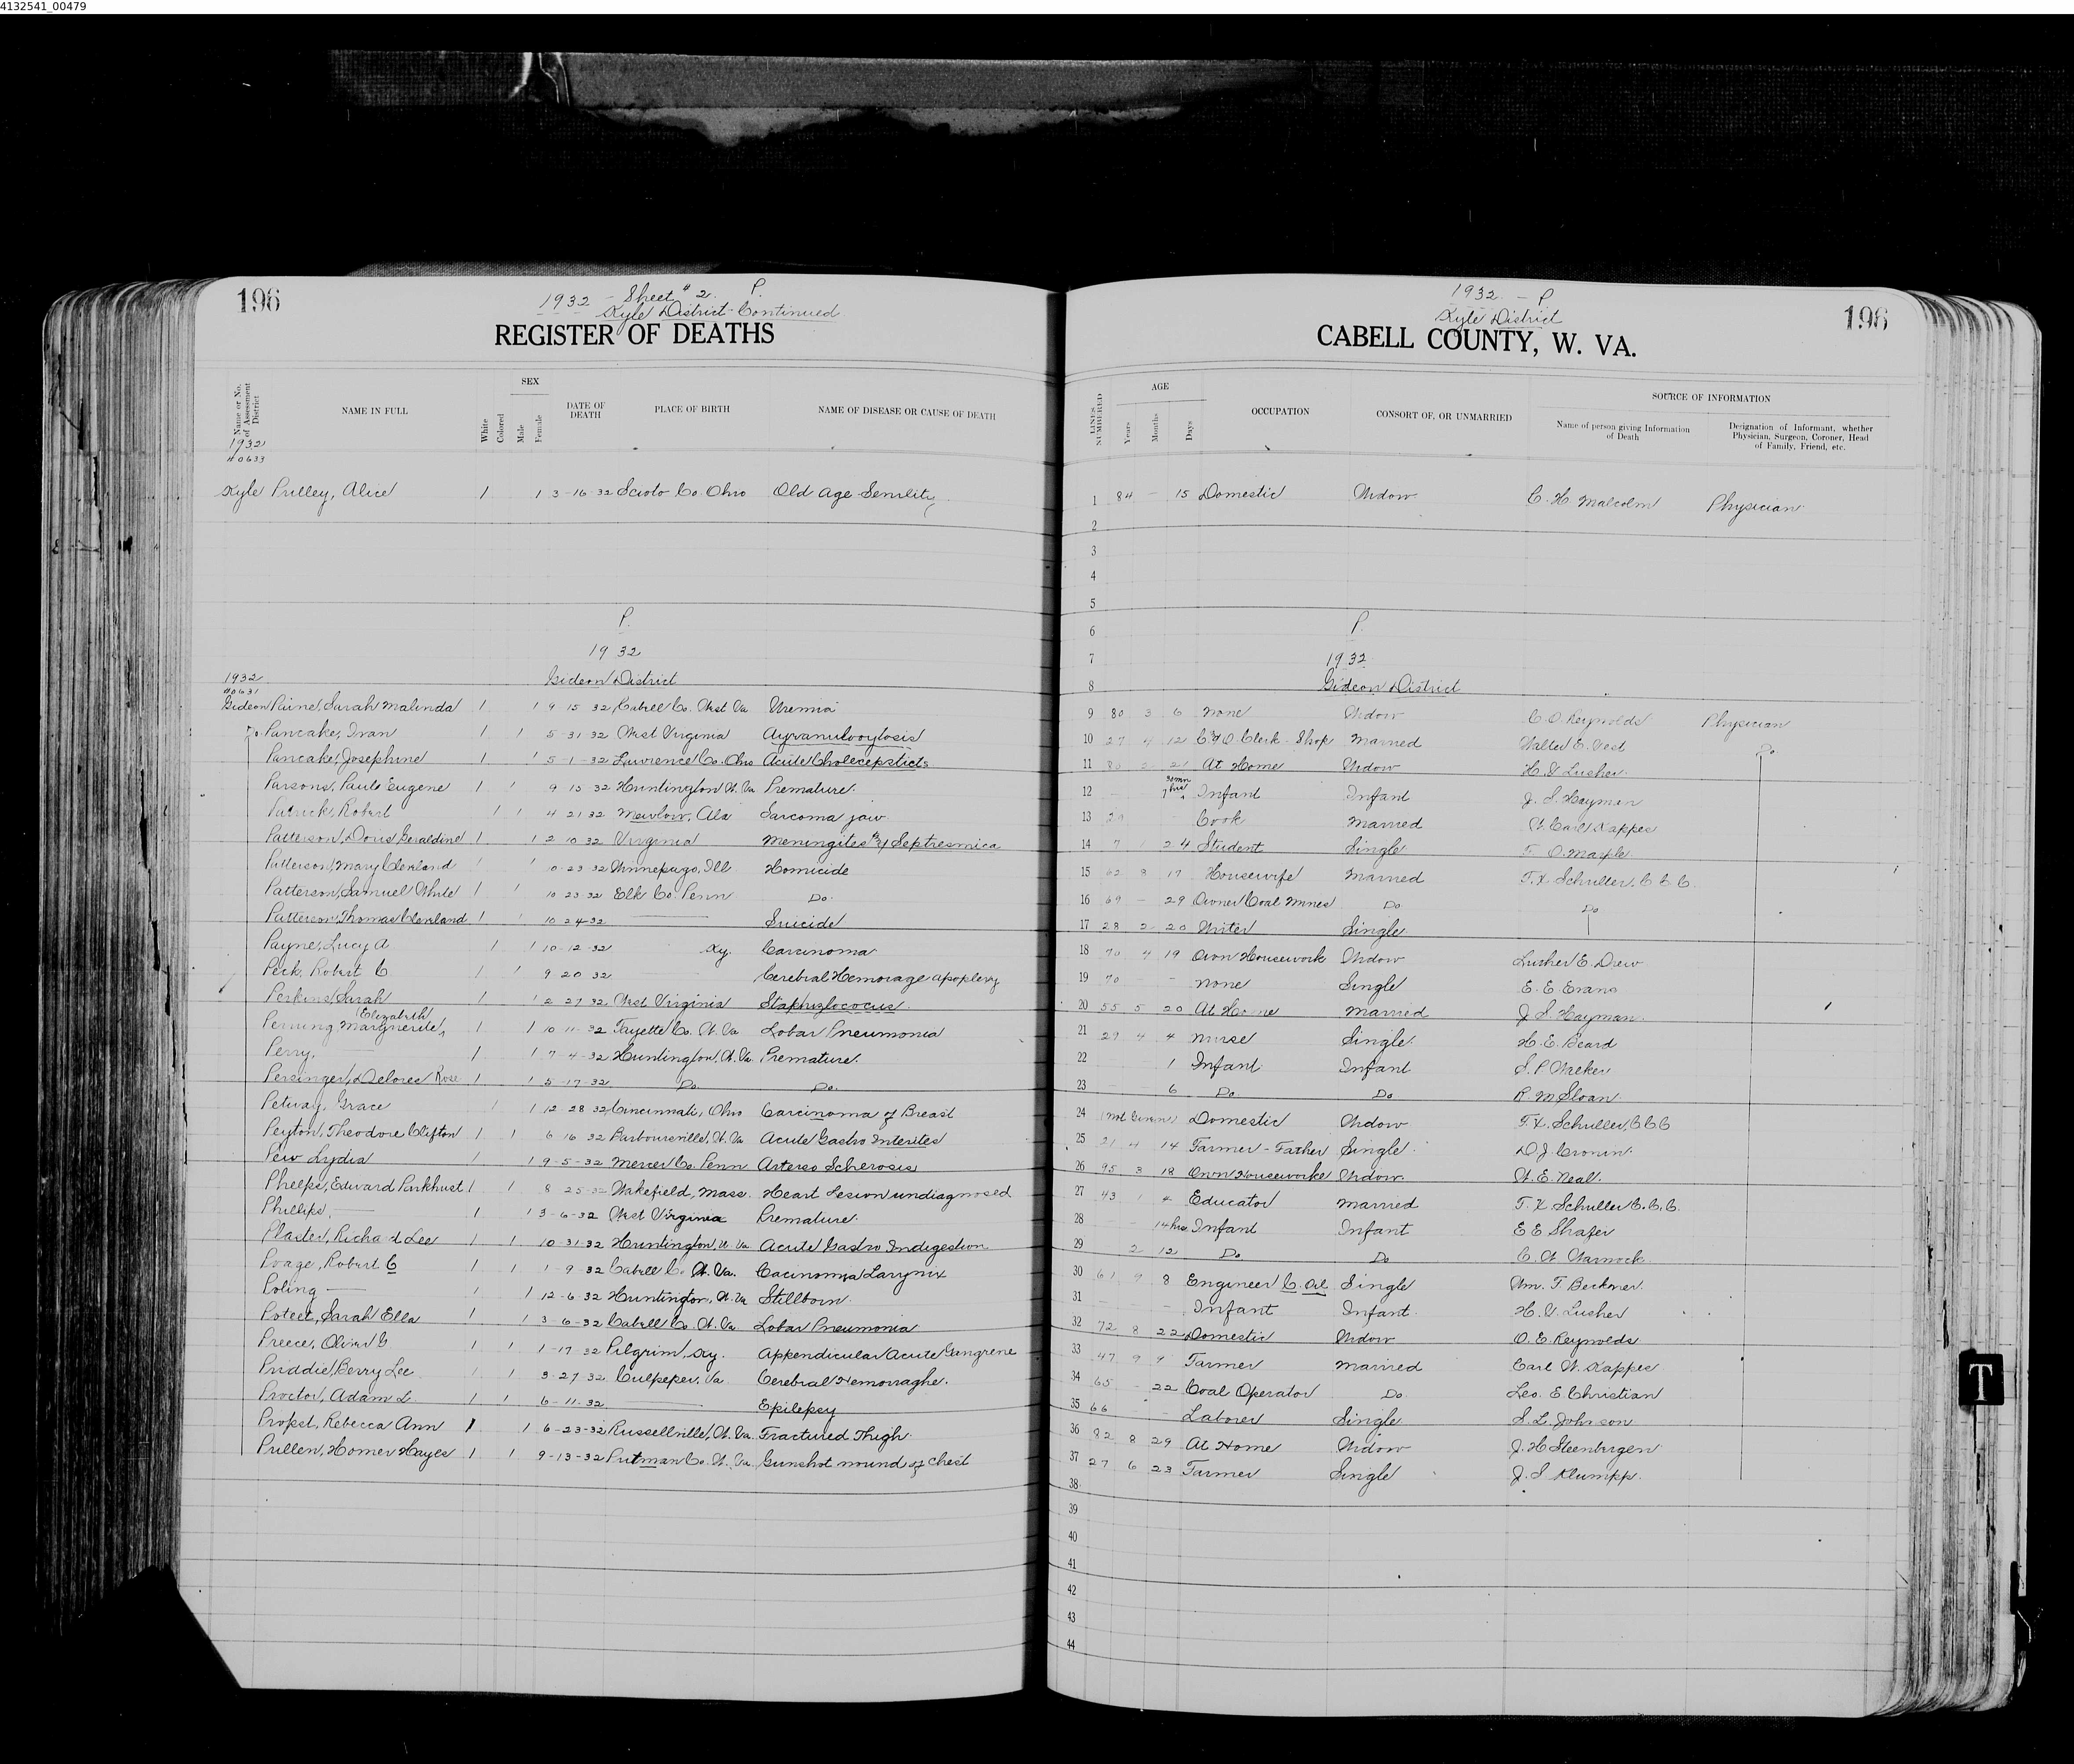 4132541_00479
196
1932 - Sheet # 2. P.
Kyle District Continued
REGISTER OF DEATHS
Name or No. of Assessment District
NAME IN FULL
White
Colored
SEX
Male
Female
DATE OF DEATH
PLACE OF BIRTH
NAME OF DISEASE OR CAUSE OF DEATH
1932
#0633
Kyle Pulley, Alice 1 1 3-16 32 Scioto Co. Ohio Old Age Senility
P.
1932
1932
Gideon District
#0631
Gideon Paine, Sarah Malinda 1 1 9 15 32 Cabell Co. West Va Uremia
Do. Pancake, Ivan 1 1 5-31 32 West Virginia Agranulocytosis
Pancake, Josephine 1 1 5-1-32 Lawrence Co. Ohio Acute Cholecepsticts
Parsons, Paul Eugene 1 1 9 15 32 Huntington W. Va Premature.
Patrick, Robert 1 1 4 21 32 Ala Sarcoma jaw
Patterson, Doris Geraldine 1 1 2 10 32 Virginia Meningites & Septresmica
Patterson, Mary Cleveland 1 1 10 23 32 Winnepago, Ill Homicide
Patterson, Samuel White 1 1 10 23 32 Elk Co. Penn Do.
Patterson, Thomas Cleveland 1 1 10-24-32 Suicide
Payne, Lucy A. 1 1 10-12-32 Ky. Carcinoma
Peck, Robert C 1 1 9 20 32 Cerebral Hemorage apoplexy
Perkins, Sarah 1 1 2 27 32 West Virginia Staphyzlococus.
Elizabeth
Marguerite, 1 1 10 11 32 Fayette Co. W. Va Lobar Pneumonia
Perry, 1 1 7-4-32 Huntington, W. Va. Premature.
Persinger, Delores Rose 1 1 5-17-32 Do. Do.
Petway, Grace 1 1 12 28 32 Cincinnati, Ohio Carcinoma of Breast
Peyton, Theodore Clifton 1 1 6 16 32 Barboursville, W. Va Acute Gastro Interites
Pew Lydia 1 1 9-5-32 Mercer Co. Penn Arterso Scherosis
Phelps, Edward Parkhust 1 1 8 25-32 Wakefield, Mass. Heart Lesion undiagnosed
Phillips, 1 1 3-6-32 West Virginia Premature.
Plaster, Richard Lee 1 1 10-31-32 Huntington, W. Va Acute Gastro Indigestion
Poage, Robert C 1 1 1-9 32 Cabell Co. W. Va. Cacinoma Larynix
Poling 1 1 12-6-32 Huntington, W. Va Stillborn.
Poteet, Sarah Ella 1 1 3-6-32 Cabell Co. W. Va. Lobar Pneumonia
Preece, Oliver G 1 1 1-17 32 Pilgrim, Ky. Appendicular Acute Gangrene
Priddie, Berry Lee 1 1 3-27 32 Culpeper, Va Cerebral Hemorraghe.
Proctor, Adam L. 1 1 6-11-32 Epilepsy
Propst, Rebecca Ann 1 1 6-23-32 Russellville, W. Va. Fractured Thigh.
Pullen, Homer Hayes 1 1 9-13-32 Putman Co. W. Va. Gunshot wound of chest
196
1932 - P
Kyle District
CABELL COUNTY, W. VA.
LINES NUMBERED
AGE
Years
Months
Days
OCCUPATION
CONSORT OF, OR UNMARRIED
SOURCE OF INFORMATION
Name of person giving Information of Death
Designation of Informant, whether Physician, Surgeon, Coroner, Head of Family, Friend, etc.
1 84 - 15 Domestic Widow C. H Malcolm Physician
2
3
4
5
6 P.
7 1932
8 Gideon District
9 80 3 6 None Widow C. O. Reynolds Physician
10 27 4 12 C & O. Clerk - Shop Married Walter E. Vest Do
11 21 At Home Widow H. V. Lusher.
12 7 hrs 30 mn Infant Infant J. S. Hayman
13 Cook Married W. Carl Kappes
14 7 1 24 Student Single F. O. Marple
15 62 8 17 Housewife Married F. X. Schuller, C. C. C.
16 69 - 29 Owner Coal Mines Do Do
17 28 2 20 Writer Single
18 70 4 19 Own Housework Widow Lusher E. Drew
19 70 - None Single E. E. Evans
20 55 5 20 At Home Married J. S. Hayman.
21 29 4 4 Nurse Single. H. E. Beard
22 1 Infant Infant S. P. Walker
23 6 Do Do R. M Sloan
24 (Not Given) Domestic Widow F. X. Schuller, C C C
25 21 4 14 Farmer - Father Single D. J. Cronin.
26 95 3 18 Own Houseworke Widow W. E. Neal.
27 43 1 4 Educator Married F. X. Schuller C. C. C.
28 - 14 hrs Infant Infant E E Shafer
29 2 12 Do Do C. W. Warnock
30 61 9 8 Engineer C. Single Wm. F. Beckner.
31 - Infant Infant. H. V. Lusher
32 72 8 22 Domestic Widow O. E. Reynolds
33 47 9 9 Farmer Married Carl W. Kappes
34 65 - 22 Coal Operator Do Leo. E. Christian
35 66 - - Laborer Single S. L. Johnson
36 82 8 29 At Home Widow J. H Steenbergen
37 27 6 23 Farmer Single J. S Klumpp.
38
39
40
41
42
43
44
T